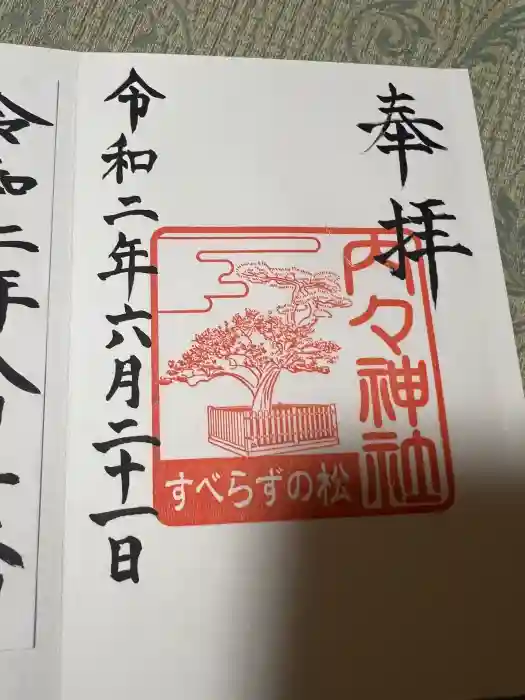 奉拝
内々神社
すべらずの松
令和二年六月二十一日
令和二年八月